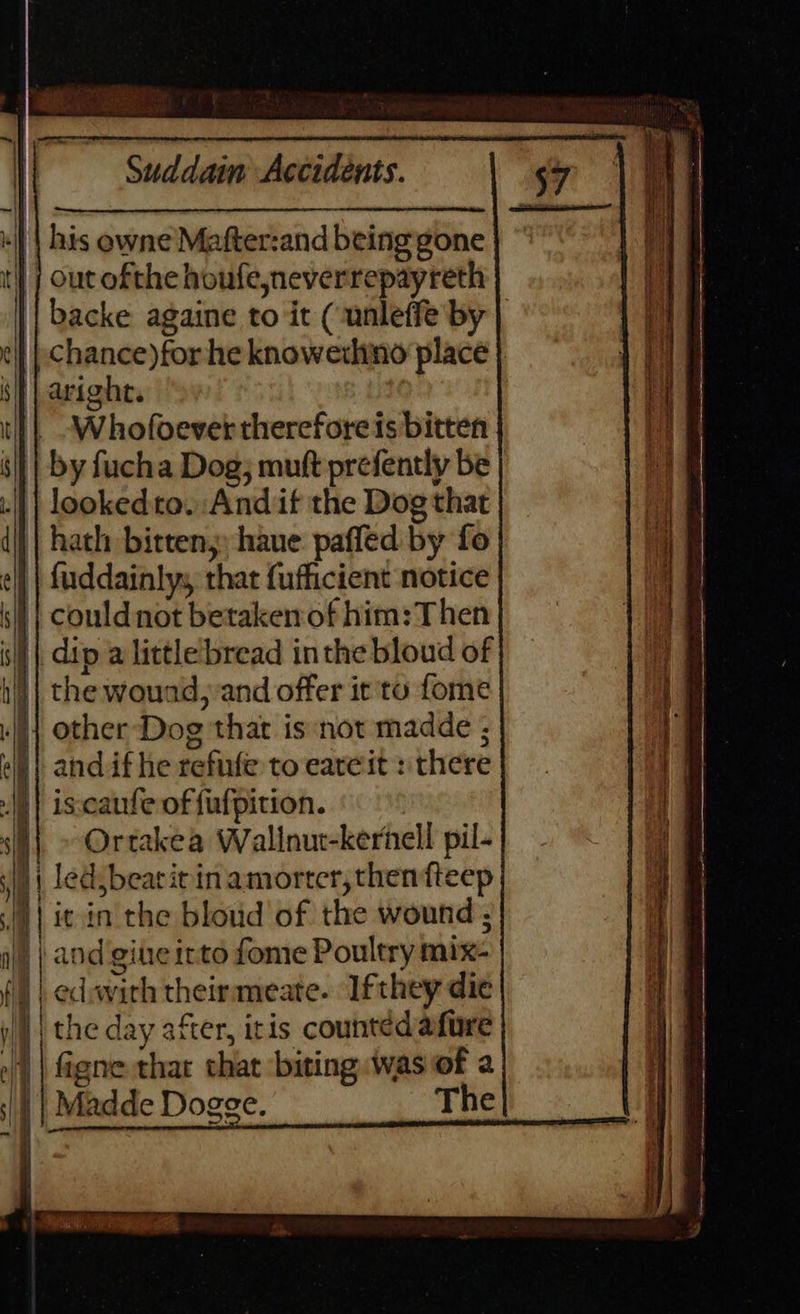 Suddain Accidents. 57
his owne Maſter:and being gone
out of the houſe,never repayreth
backe againe to it (unleſſe by
chance)for he knoweth no place
aright.
Whoſoever therefore is bitten
by ſuch a Dog, muſt preſently be
looked to. And if the Dog that
hath bitten, haue paſſed by ſo
ſuddainly, that ſufficient notice
could not be taken of him: Then
dip a little bread in the bloud of
the wound, and offer it to ſome
other Dog that is not madde ;
and if he refuſe to eate it : there
is cauſe of ſuſpition.
Or take a Wallnut-kernell pil-
led, beat it in a morter, then ſteep
it in the bloud of the wound ;
and giue it to ſome Poultry mix-
ed with their meate. If they die
the day after, it is counted a ſure
ſigne that that biting was of a
Madde Dogge. The